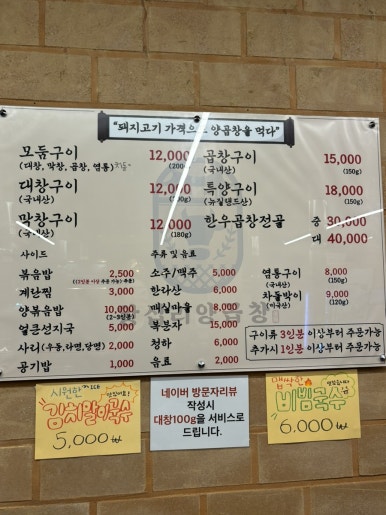 "돼지고기 가격으로 양곱창을 먹다"
모둠구이 12,000
(대창, 막창, 곱창, 염통) (200g)
대창구이 12,000
(국내산)
막창구이 12,000
(국내산) (180g)
곱창구이 15,000
(국내산) (150g)
특양구이 18,000
(뉴질랜드산) (150g)
한우곱창전골 중 30,000
대 40,000
사이드
볶음밥 2,500
계란찜 3,000
양볶음밥 10,000
(2~3인분)
얼큰선지국 5,000
사리(우동,라면,당면) 2,000
공기밥 1,000
주류 및 음료
소주/맥주 5,000
한라산 6,000
매실마을 8,000
복분자 15,000
청하 6,000
음료 2,000
염통구이 8,000
(국내산) (150g)
차돌박이 9,000
(미국산) (120g)
구이류 3인분 이상부터 주문가능
추가시 1인분 이상부터 주문가능
시원한
김치말이국수
5,000
네이버 방문자리뷰
작성시
대창100g을 서비스로
드립니다.
비빔국수
6,000